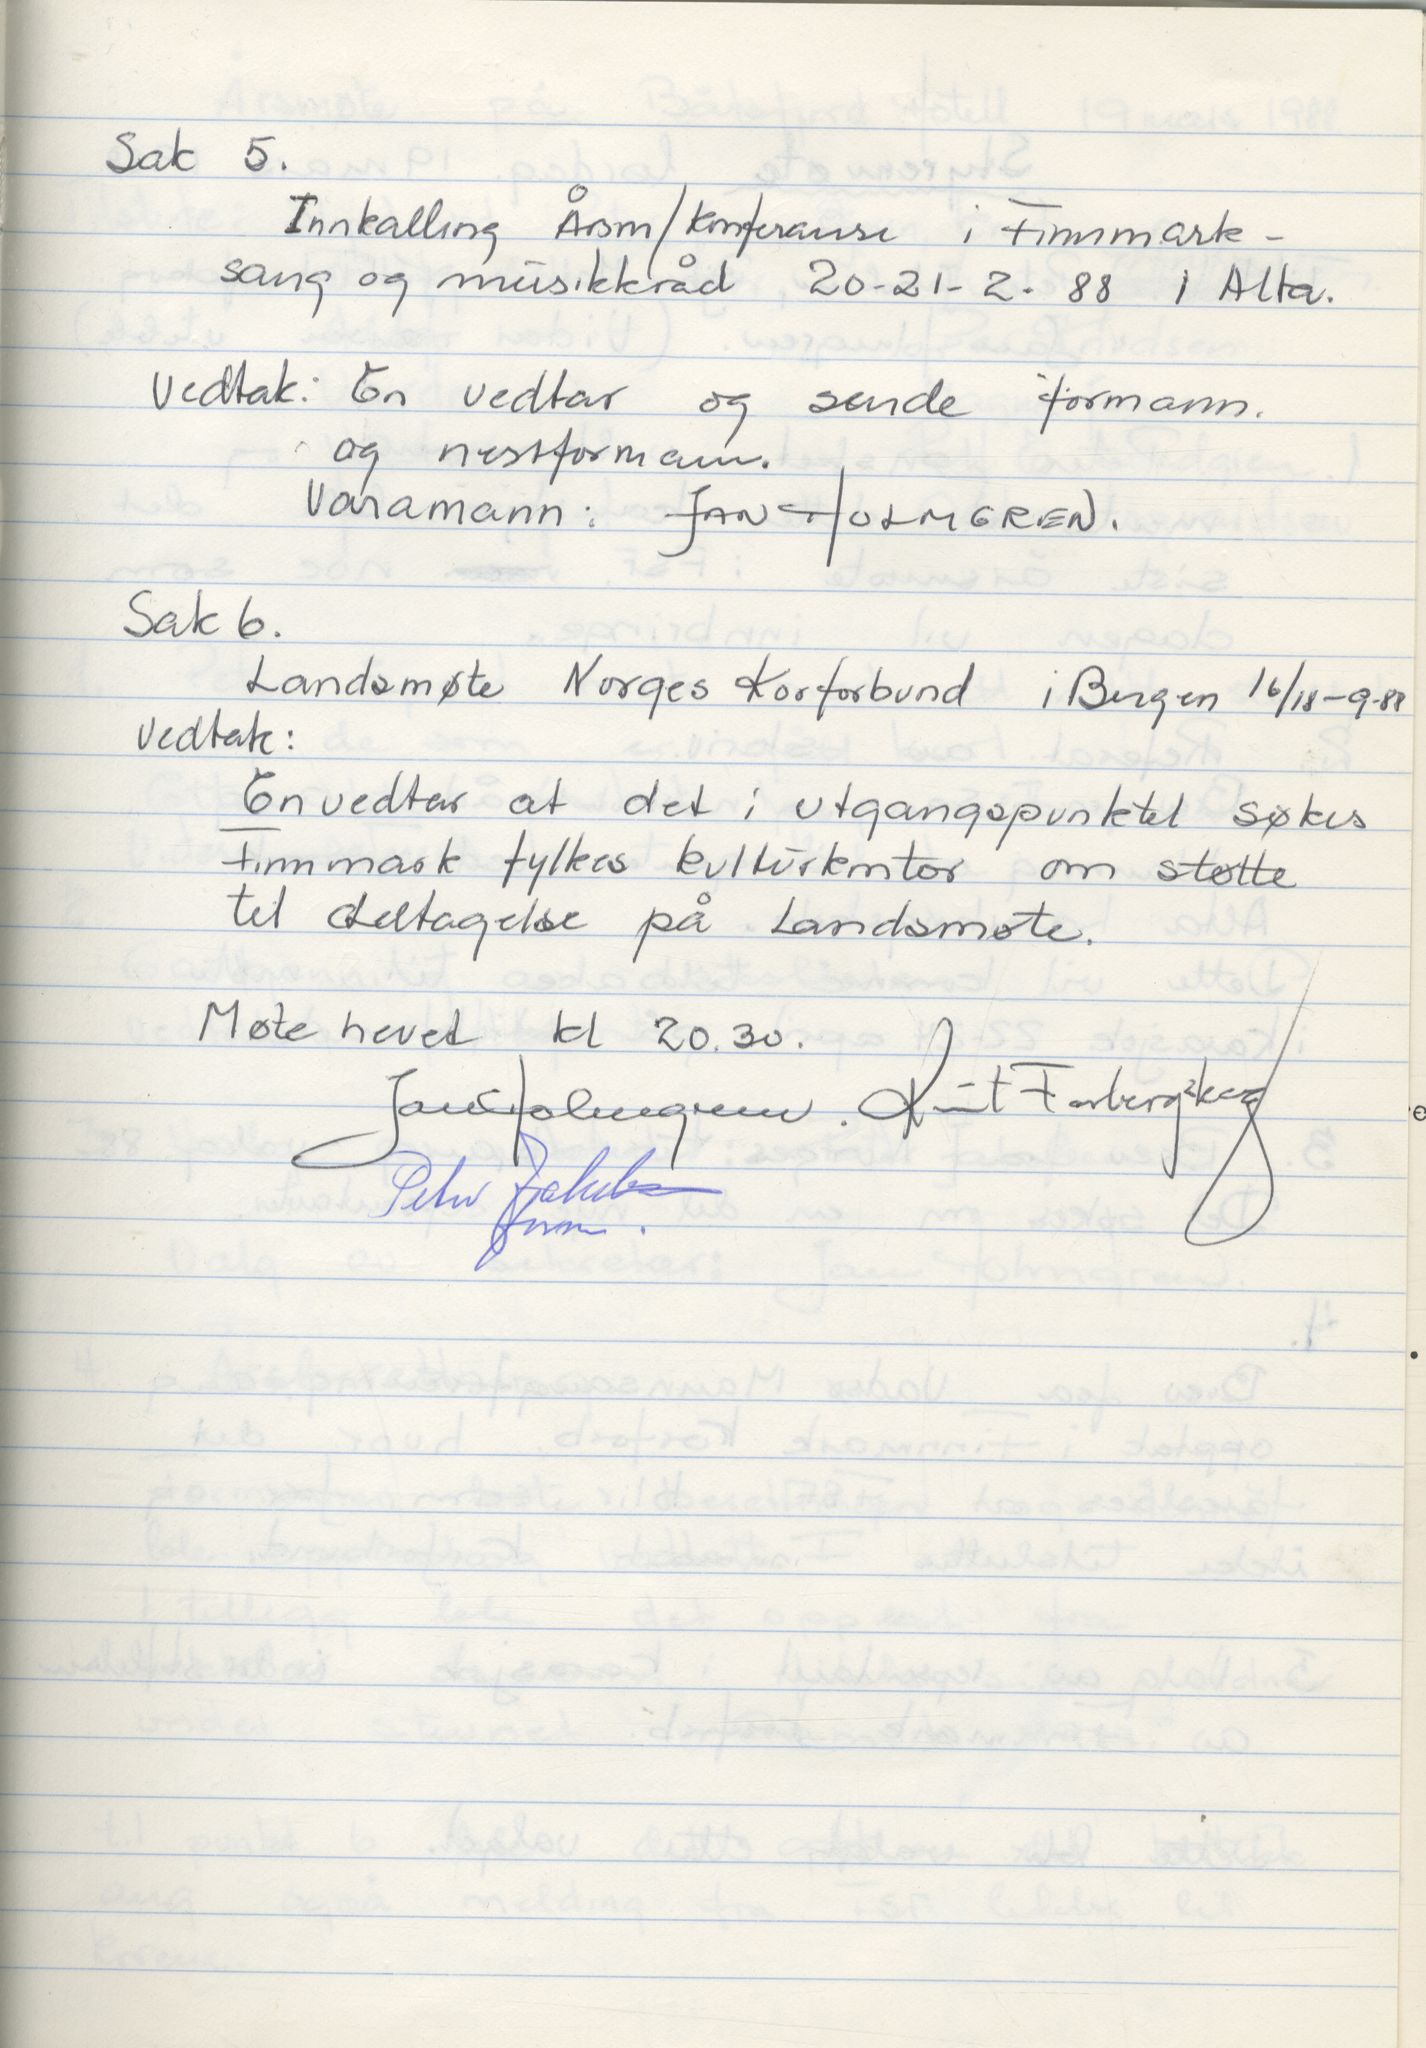 Sak 5.
Innkalling Årsm/konferanse i Finnmark -
sang og musikkråd 20-21-2. 88 i Alta.
Vedtak: En vedtar og sende formann.
og nestformann.
Varamann: JAN HOLMGREN.
Sak 6.
Landsmøte Norges Korforbund i Bergen 16/18-9-88
Vedtak:
En vedtar at det i utgangspunktet søkes
Finnmark fylkes kulturkontor om støtte
til deltagelse på Landsmøte.
Møte hevet kl 20.30.
Jan Holmgren. Knut Farbergskog
Peter
form.